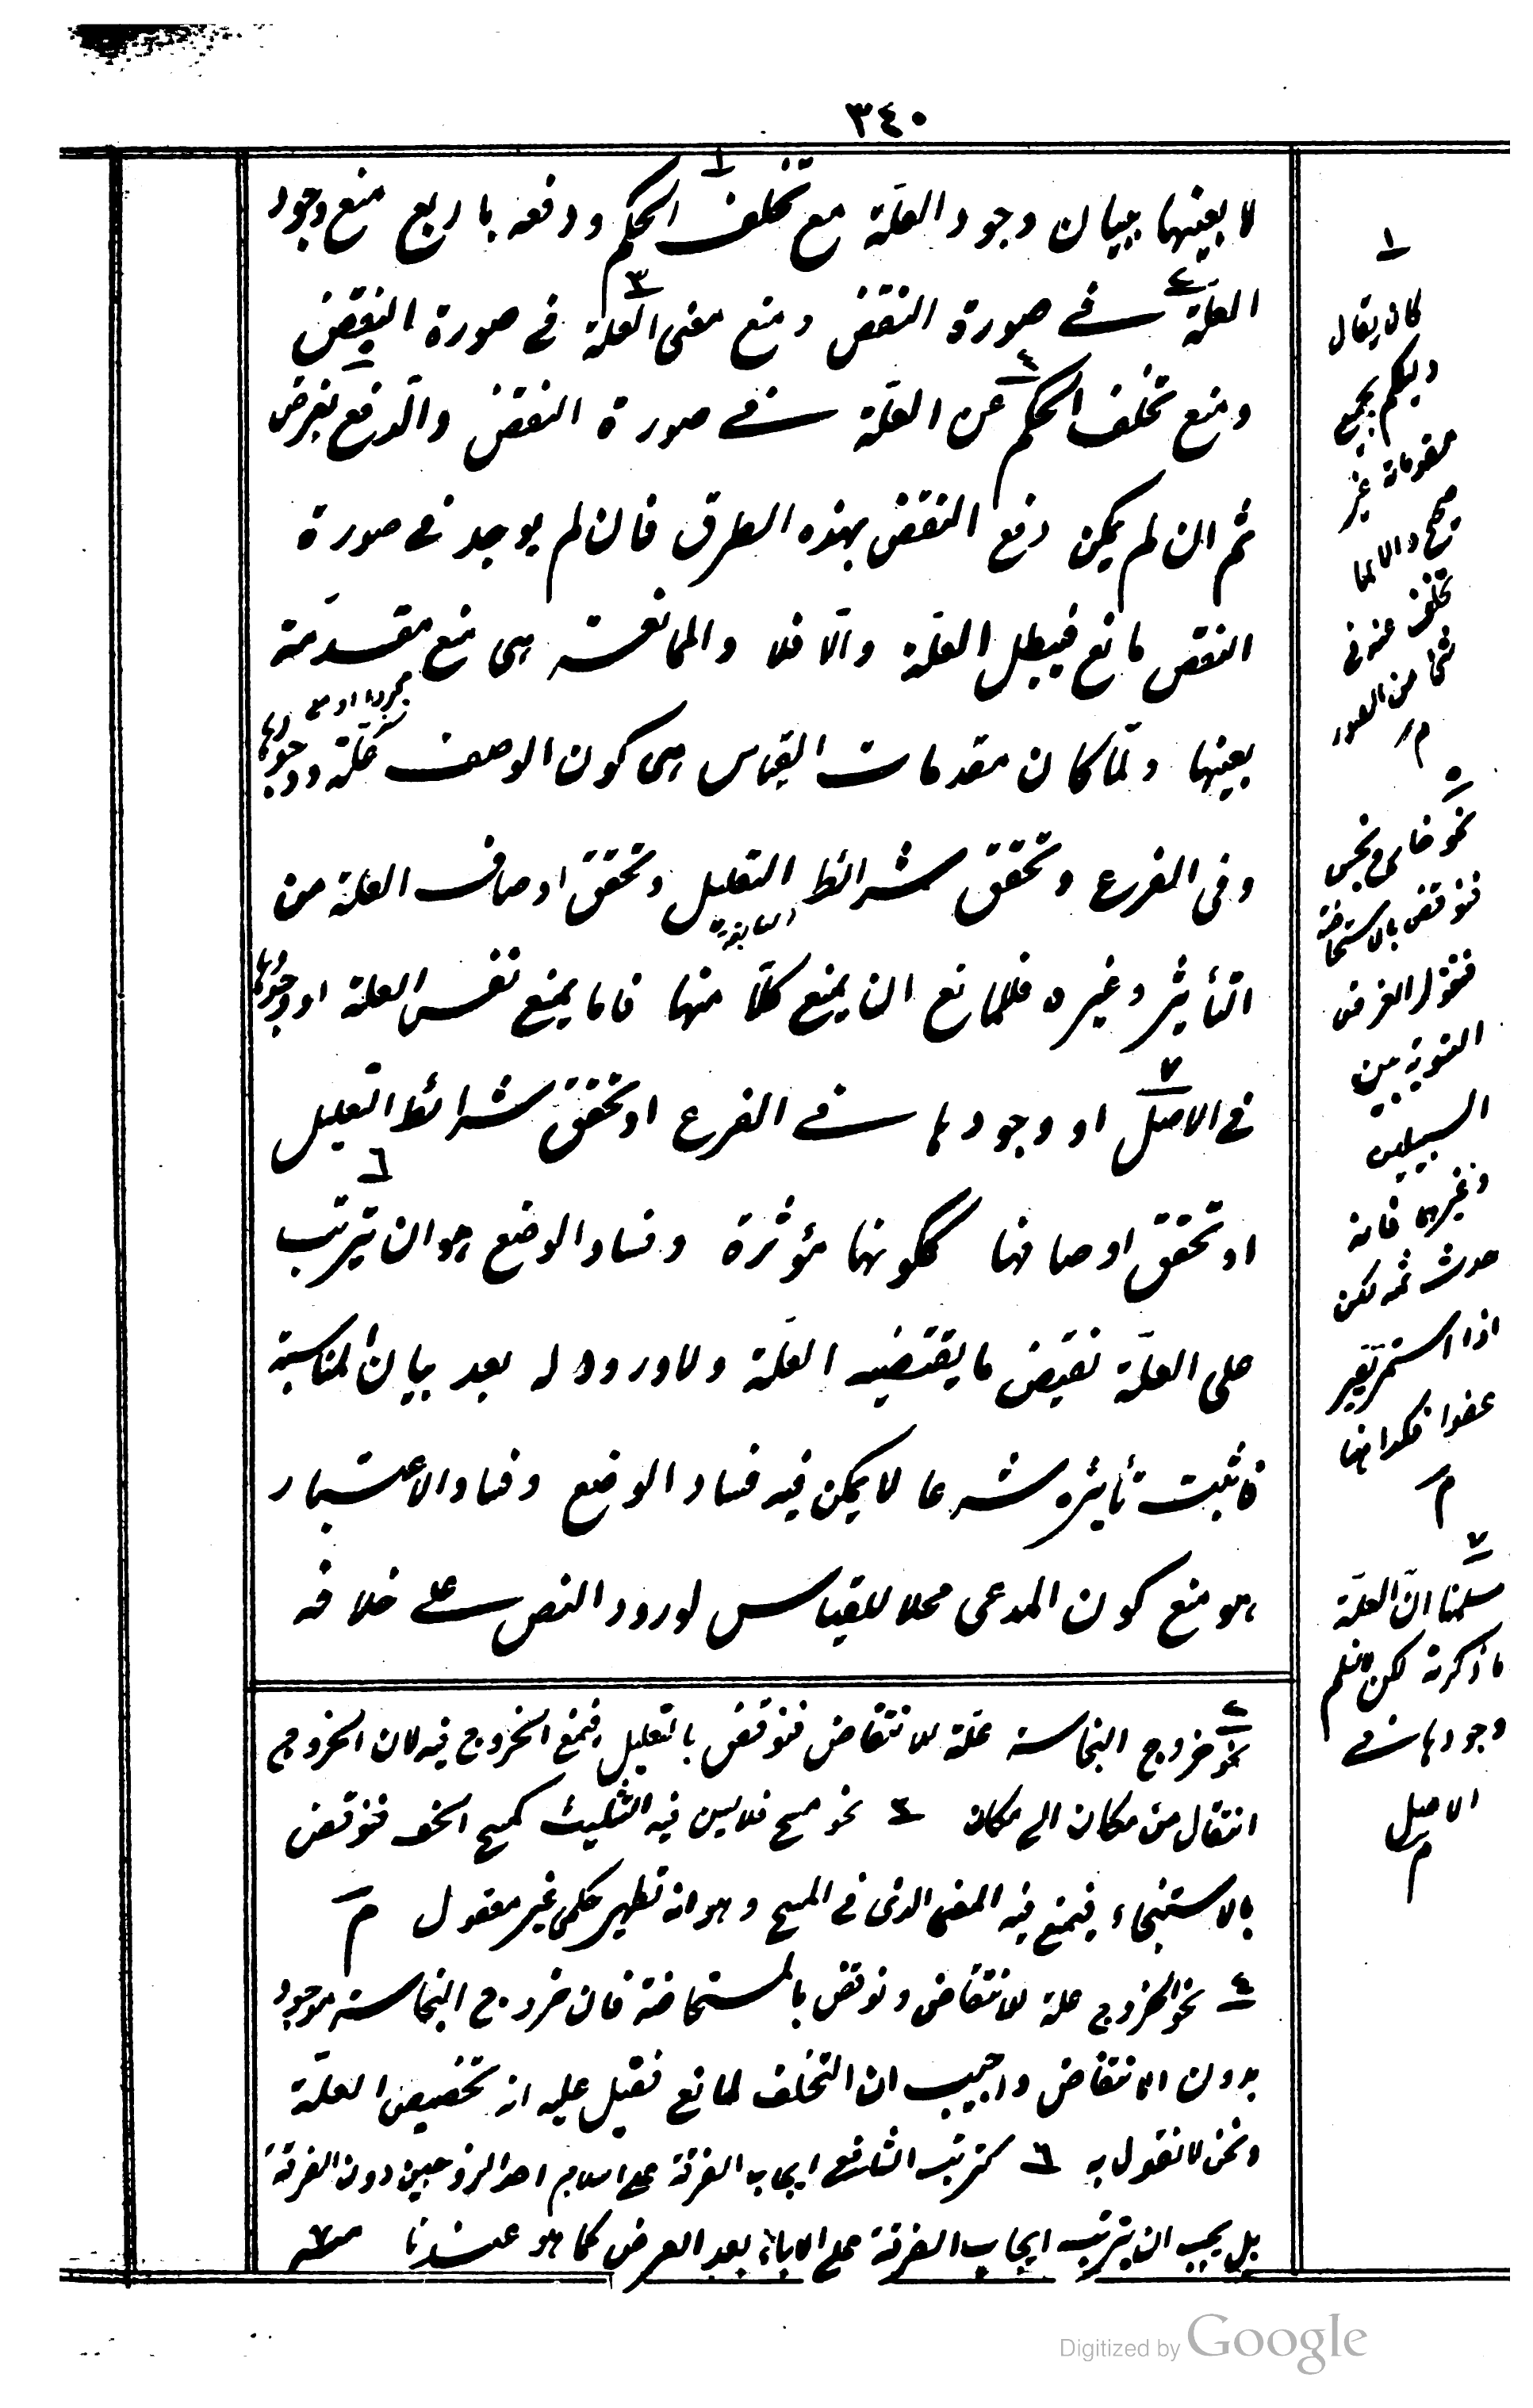 ٣٤٠
لا بعينها ببيان وجود العلّة مع تخلف الحكم ودفعه باربع منع وجود
العلّة فى صورة النقض ومنع معنى العلة فى صورة النقض
ومنع تخلف الحكم عن العلّة فى صورة النقض والدفع بغرض
ثم ان لم يمكن دفع النقض بهذه الطرق فان لم يوجد فى صورة
النقض مانع فيبطل العلّة والّا فلا والممانعة هى منع مقدّمة
بعينها ولمّا كان مقدمات القياس هى كون الوصف علّة ووجودها
وفى الفرع وتحقق شرائط التعليل وتحقق اوصاف العلة من
التأثير وغيره فللمانع ان يمنع كلّا منها فاما يمنع نفس العلة او وجودها
فى الاصل او وجودها فى الفرع او تحقق شرائط التعليل
او تحقق اوصافها ككونها مؤثرة وفساد الوضع هو ان يترتب
على العلّة نقيض ما يقتضيه العلّة ولا ورود له بعد بيان المناسبة
فاثبت تأثيره شرعا لا يمكن فيه فساد الوضع وفساد الاعتبار
هو منع كون المدعى محلا للقياس لورود النص على خلافه
١
كان يقال
دليلكم بجميع
مقدماته غير
صحيح والا لما
تخلف عنه فى
شئ من الصور
م
٥
نحو خارج نجس
فنوقض بالاستحاضة
فنقول الغرض
التسوية بين
السبيلين
وغيرهما فانه
حدث ثمه لكن
اذا استمر يصير
عفوا فكذا هنا
م
٧
سلمنا انّ العلّة
ما ذكرته لكن لا نسلم
وجودها فى
الاصل
م
٢ نحو خروج النجاسة علّة للانتقاض فنوقض بالقليل فيمنع الخروج فيه لان الخروج
انتقال من مكان الى مكان ٣ نحو مسح فلا يسن فيه التثليث كمسح الخف فنوقض
بالاستنجاء فيمنع فيه المعنى الذى فى المسح وهو انه تطهير حكمى غير معقول م
٤ نحو الخروج علة للانتقاض ونوقض بالمستحاضة فان خروج النجاسة موجود
بدون الانتقاض واجيب ان التخلف لمانع فقيل عليه انه تخصيص العلّة
ونحن لا نقول به ٦ كترتيب الشافعى ايجاب الفرقة على اسلام احد الزوجين دون الفرقة
بل يجب ان يترتب ايجاب الفرقة على الاباء بعد العرض كما هو عندنا
Digitized by Google